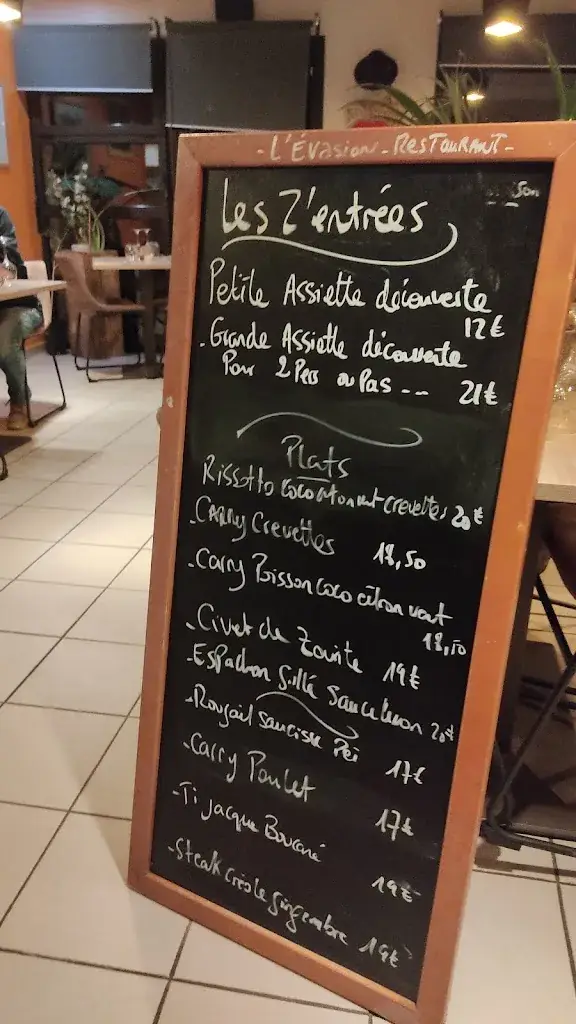 - L'Évasion - Restaurant -
son
Les Z'entrées
Petite Assiette découverte
12€
- Grande Assiette découverte
Pour 2 Pers ou Pas -- 21€
Plats
Rissotto coco citron vert crevettes 20€
- Carry Crevettes
18,50
- Carry Poisson coco citron vert
18,50
- Civet de Zourite 19€
- Espadon grillé sauce citron 20€
- Rougail saucisse Péi
17€
- Carry Poulet
17€
- Ti jacque Boucané
19€
- Steak créole gingembre 19€